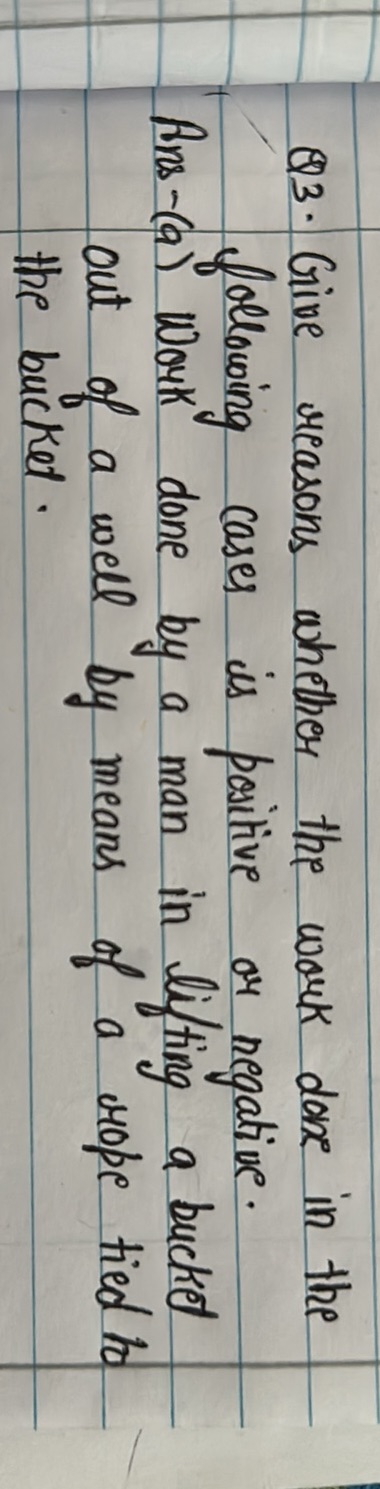 Q3. Give reasons whether the work done in the
following cases is positive or negative.
Ans-(a) Work done by a man in lifting a bucket
out of a well by means of a rope tied to
the bucket.